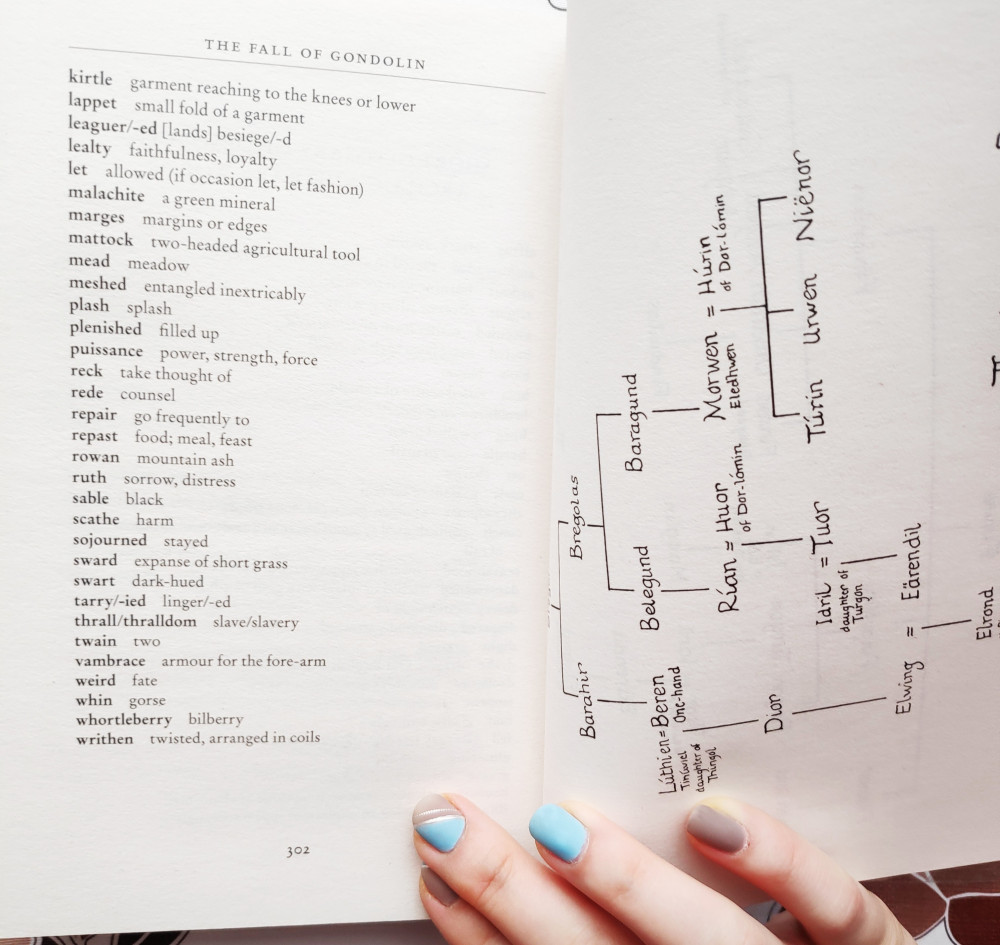 THE FALL OF GONDOLIN
kirtle garment reaching to the knees or lower
lappet small fold of a garment
leaguer/-ed [lands] besiege/-d
lealty faithfulness, loyalty
let allowed (if occasion let, let fashion)
malachite a green mineral
marges margins or edges
mattock two-headed agricultural tool
mead meadow
meshed entangled inextricably
plash splash
plenished filled up
puissance power, strength, force
reck take thought of
rede counsel
repair go frequently to
repast food; meal, feast
rowan mountain ash
ruth sorrow, distress
sable black
scathe harm
sojourned stayed
sward expanse of short grass
swart dark-hued
tarry/-ied linger/-ed
thrall/thralldom slave/slavery
twain two
vambrace armour for the fore-arm
weird fate
whin gorse
whortleberry bilberry
writhen twisted, arranged in coils
302
Barahir Bregolas
Belegund Baragund
Lúthien = Beren
Tinúviel One-hand
daughter of
Thingol
Rían = Huor
of Dor-lómin
Morwen = Húrin
Eledhwen of Dor-lómin
Dior
Idril = Tuor
daughter of
Turgon
Túrin Urwen Niënor
Elwing = Eärendil
Elrond